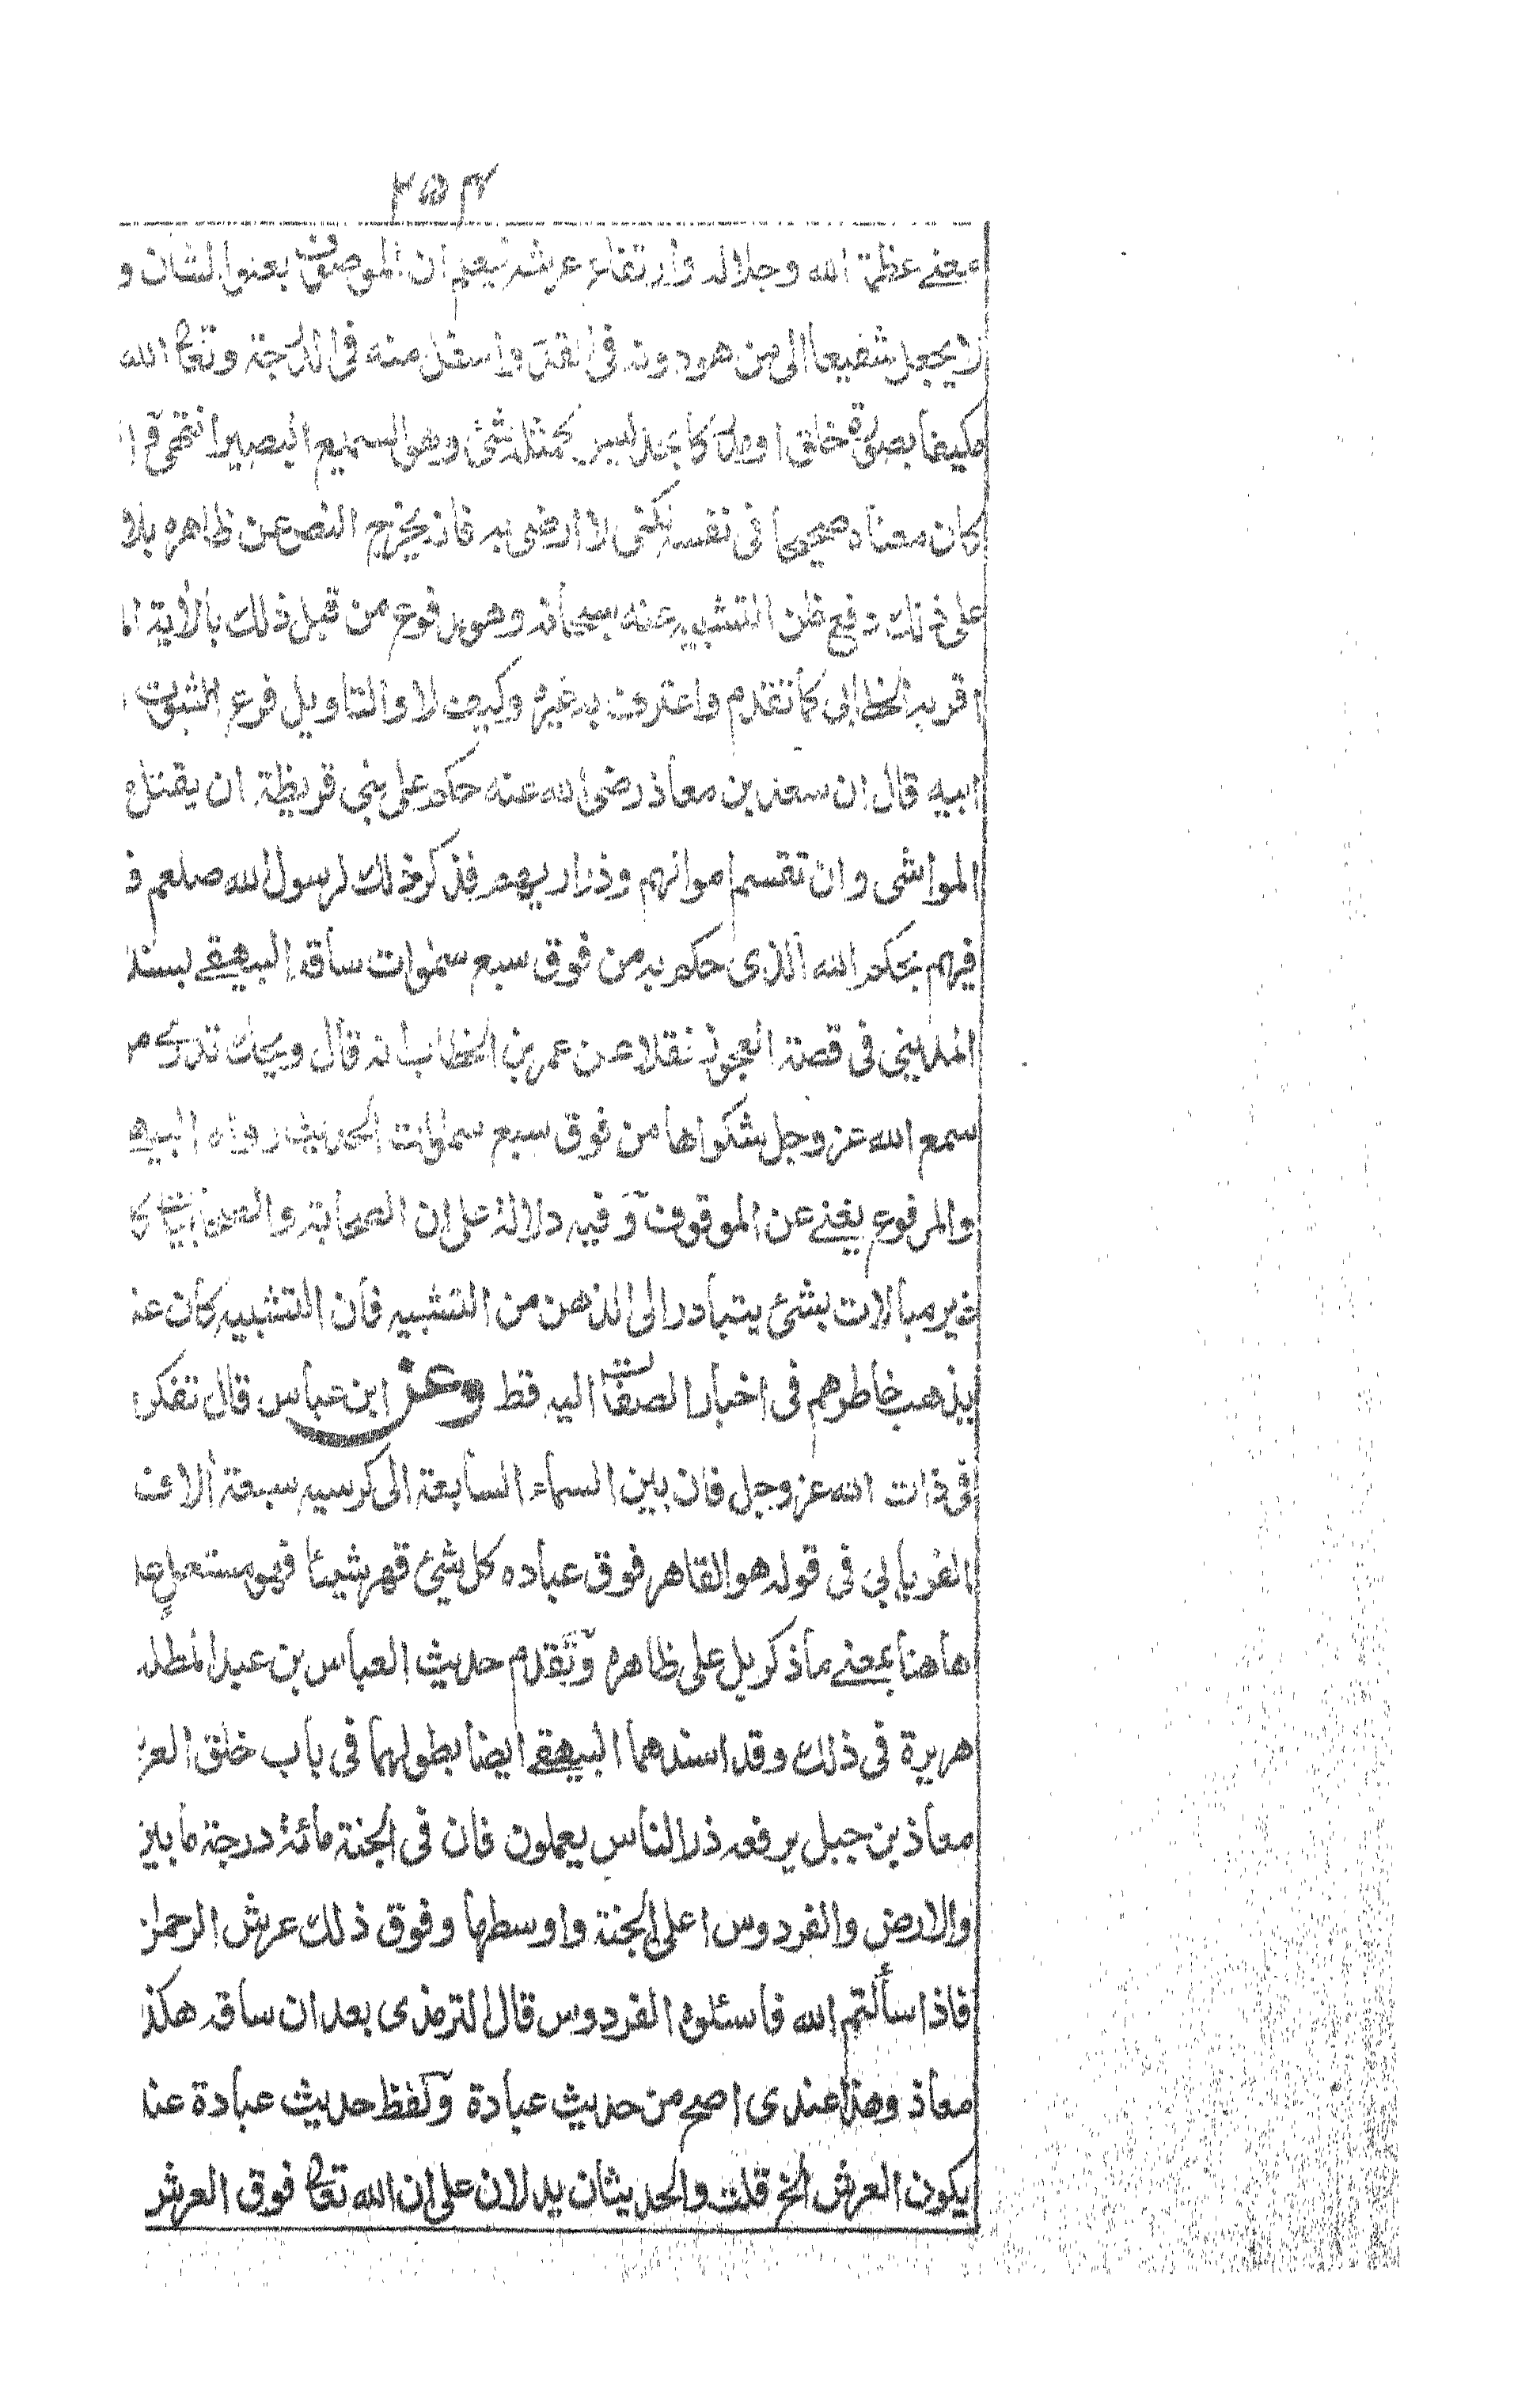 ۲۵۴
معنے عظمة الله وجلاله وارتفاء عرشه ليعلم ان الموصوف بعلو الشان و
لا يجعل شفيعا الى من هو دونه فى القدر واسفل منه فى الدرجة وتعا الله
مكيفا بصورة خلق او مدركا بحد ليس كمثله شئ وهو السميع البصير انتهى
كان معناه صحيحا فى نفسه لكنى لا ارضى به فانه يخرج النص عن ظاهره بلا
على ذلك دفع ظن التشبيه عنه سبحانه وهو مدفوع من قبل ذلك بالأية
اقر به الخطابى كما تقدم واعترف به غيره وكيف لا والتاويل فرع الثبوت
ابيه قال ان سعد بن معاذ رضى الله عنه حكم على بنى قريظة ان يقتل
المواشى وان تقسم اموالهم وذراريهم فذكر ذلك لرسول الله صلعم
فيهم بحكم الله الذى حكم به من فوق سبع سموات ساقه البيهقے بسند
المدينى فى قصة العجوز نقلا عن عمر بن الخطاب انه قال ويحك تدرے
سمع الله عز وجل شكواها من فوق سبع سموات الحديث رواه البيه
والمرفوع يغنے عن الموقوف وفيه دلالة على ان الصحابة والصحابيات
غير مبالات بشئ يتبادر الى الذهن من التشبيه فان التشبيه كان
يذهب خاطرهم فى اخبار الصفات اليه قط وعن ابن عباس قال تفكر
فى ذات الله عز وجل فان بين السماء السابعة الى كرسيه سبعة ألاف
الفريابى فى قوله هو القاهر فوق عباده كل شئ قهر شيئا فهو مستعل
هاهنا بمعنے ما ذكر بل على ظاهره وتقدم حديث العباس بن عبد المطلب
هريرة فى ذلك وقد اسندهما البيهقے ايضا بطولهما فى باب خلق العر
معاذ بن جبل يرفعه ذر الناس يعملون فان فى الجنة مائة درجة ما بين
والارض والفردوس اعلى الجنة واوسطها وفوق ذلك عرش الرحمن
فاذا سألتم الله فاسئلوه الفردوس قال الترمذى بعد ان ساقه هكذ
معاذ وهذا عندى اصح من حديث عبادة ولفظ حديث عبادة عند
يكون العرش الخ قلت والحديثان يدلان على ان الله تعا فوق العرش